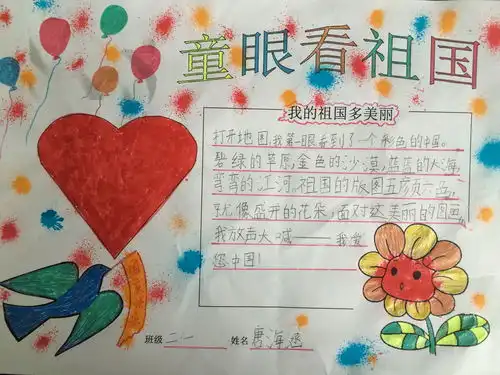 童眼看祖国
我的祖国多美丽
打开地图我第一眼看到了一个彩色的中国。
碧绿的草原,金色的沙漠,蓝蓝的大海,
弯弯的江河。祖国的版图五颜六色,
就像盛开的花朵,面对这美丽的图画,
我放声大喊——我爱
您中国!
班级 二一 姓名 唐海